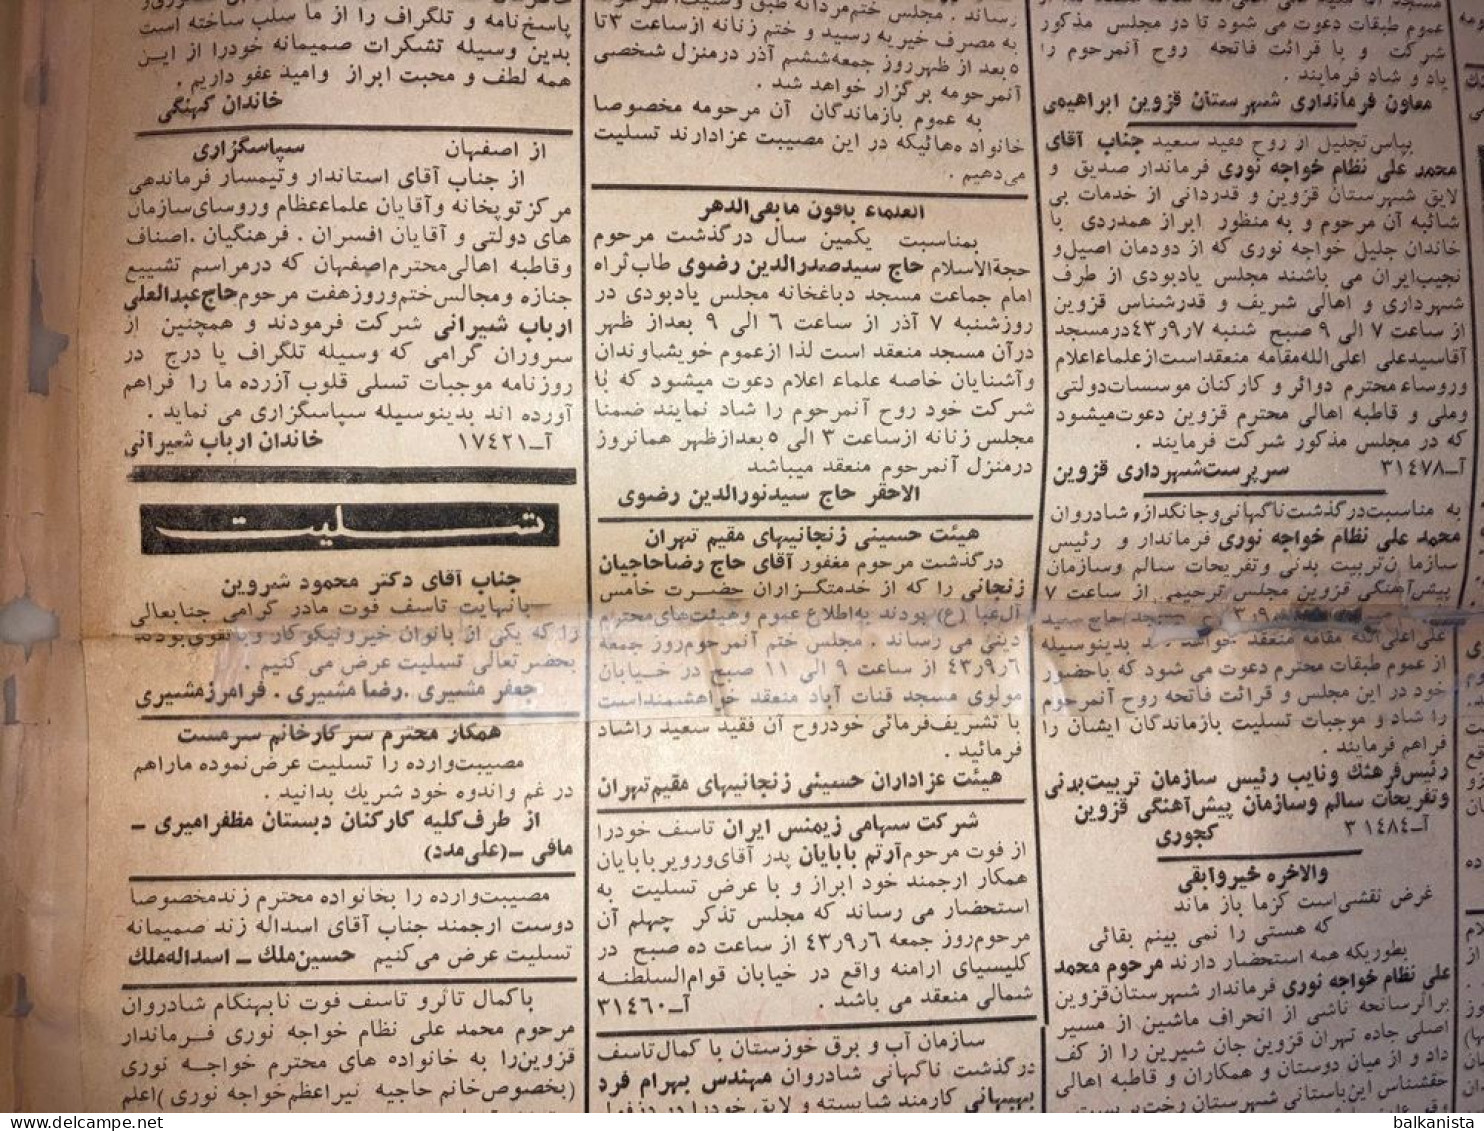 عموم طبقات دعوت می شود تا دو مجلس مذکور
شرکت و با قرائت فاتحه روح آنمرحوم را
یاد و شاد فرمایند .
معاون فرمانداری شهرستان قزوین ابراهیمی
بپاس تجلیل از روح فقید سعید جناب آقای
محمد علی نظام خواجه نوری فرماندار صدیق و
لایق شهرستان قزوین و قدردانی از خدمات بی
شائبه آن مرحوم و به منظور ابراز همدردی با
خاندان جلیل خواجه نوری که از دودمان اصیل و
نجیب ایران می باشند مجلس یادبودی از طرف
شهرداری و اهالی شریف و قدرشناس قزوین
از ساعت ۷ الی ۹ صبح شنبه ۴۳ر۹ر۷ درمسجد
آقاسیدعلی اعلی‌الله‌مقامه منعقداست‌ازعلماءاعلام
وروساء محترم دوائر و کارکنان موسسات‌دولتی
وملی و قاطبه اهالی محترم قزوین دعوت‌میشود
که در مجلس مذکور شرکت فرمایند .
آ-۳۱۴۷۸ سرپرست‌شهرداری قزوین
به مناسبت‌درگذشت‌ناگهانی‌وجانگداز، شادروان
محمد علی نظام خواجه نوری فرماندار و رئیس
سازمان‌تربیت بدنی وتفریحات سالم وسازمان
پیش‌آهنگی قزوین مجلس ترحیمی از ساعت ۷
علی‌اعلی‌الله مقامه منعقد خواهد بدینوسیله
از عموم طبقات محترم دعوت می شود که باحضور
خود در این مجلس و قرائت فاتحه روح آنمرحوم
را شاد و موجبات تسلیت بازماندگان ایشان را
فراهم فرمایند .
رئیس‌فرهنگ ونایب رئیس سازمان تربیت‌بدنی
وتفریحات سالم وسازمان پیش‌آهنگی قزوین
آ-۳۱۴۸۴ کجوری
والاخره خیروابقی
غرض نقشی‌است کزما باز ماند
که هستی را نمی بینم بقائی
بطوریکه همه استحضار دارند مرحوم محمد
علی نظام خواجه نوری فرماندار شهرستان‌قزوین
براثرسانحه ناشی از انحراف ماشین از مسیر
اصلی جاده تهران قزوین جان شیرین را از کف
داد و از میان دوستان و همکاران و قاطبه اهالی
حقشناس این‌باستانی شهرستان رخت‌بربست
رساند . مجلس ختم‌مردانه طبق
به مصرف خیریه رسید و ختم زنانه ازساعت ۳تا
۵بعد از ظهرروز جمعه‌ششم آذر درمنزل شخصی
آنمرحومه برگزار خواهد شد .
به عموم بازماندگان آن مرحومه مخصوصا
خانواده‌هائیکه در این مصیبت عزادارند تسلیت
می‌دهیم .
العلماء باقون مابقی‌الدهر
بمناسبت یکمین سال درگذشت مرحوم
حجة‌الاسلام حاج سیدصدرالدین رضوی طاب‌ثراه
امام جماعت مسجد دباغخانه مجلس یادبودی در
روزشنبه ۷ آذر از ساعت ۶ الی ۹ بعداز ظهر
درآن مسجد منعقد است لذا ازعموم خویشاوندان
وآشنایان خاصه علماء اعلام دعوت میشود که با
شرکت خود روح آنمرحوم را شاد نمایند ضمنا
مجلس زنانه ازساعت ۳ الی ۵بعدازظهر همانروز
درمنزل آنمرحوم منعقد میباشد
الاحقر حاج سیدنورالدین رضوی
هیئت حسینی زنجانیهای مقیم تهران
درگذشت مرحوم مغفور آقای حاج رضاحاجیان
زنجانی را که از خدمتگزاران حضرت خامس
آل‌عبا (ع) بودند به‌اطلاع عموم وهیئت‌های‌محترم
دینی می رساند . مجلس ختم آنمرحوم‌روز جمعه
۴۳ر۹ر۶ از ساعت ۹ الی ۱۱ صبح در خیابان
مولوی مسجد قنات آباد منعقد خواهشمنداست
با تشریف‌فرمائی خودروح آن فقید سعید راشاد
فرمائید .
هیئت عزاداران حسینی زنجانیهای مقیم‌تهران
شرکت سهامی زیمنس ایران تاسف خودرا
از فوت مرحوم‌آرتم بابایان پدر آقای‌ورویر بابایان
همکار ارجمند خود ابراز و با عرض تسلیت به
استحضار می رساند که مجلس تذکر چهلم آن
مرحوم‌روز جمعه ۴۳ر۹ر۶ از ساعت ده صبح در
کلیسیای ارامنه واقع در خیابان قوام‌السلطنه
شمالی منعقد می باشد . آ-۳۱۴۶۰
سازمان آب و برق خوزستان با کمال‌تاسف
درگذشت ناگهانی شادروان مهندس بهرام فرد
بهبهانی کارمند شایسته و لایق خودرا در دزفول
پاسخ‌نامه و تلگراف را از ما سلب ساخته است
بدین وسیله تشکرات صمیمانه خودرا از این
همه لطف و محبت ابراز وامید عفو داریم .
خاندان کهنگی
از اصفهان سپاسگزاری
از جناب آقای استاندار وتیمسار فرماندهی
مرکزتوپخانه وآقایان علماءعظام وروسای‌سازمان
های دولتی و آقایان افسران . فرهنگیان . اصناف
وقاطبه اهالی‌محترم‌اصفهان که درمراسم تشییع
جنازه ومجالس‌ختم‌وروزهفت مرحوم‌حاج‌عبدالعلی
ارباب شیرانی شرکت فرمودند و همچنین از
سروران گرامی که وسیله تلگراف یا درج در
روزنامه موجبات تسلی قلوب آزرده ما را فراهم
آورده اند بدینوسیله سپاسگزاری می نماید .
آ-۱۷۴۲۱ خاندان ارباب شیرانی
تسلیت
جناب آقای دکتر محمود شروین
بانهایت تاسف فوت مادر گرامی جنابعالی
را که یکی از بانوان خیرونیکوکار وباتقوی‌بودند
بحضرتعالی تسلیت عرض می کنیم .
جعفر مشیری .رضا مشیری . فرامرزمشیری
همکار محترم سرکارخانم سرمست
مصیبت‌وارده را تسلیت عرض‌نموده ماراهم
در غم واندوه خود شریک بدانید .
از طرف‌کلیه کارکنان دبستان مظفرامیری -
مافی -(علی‌مدد)
مصیبت‌وارده را بخانواده محترم زندمخصوصا
دوست ارجمند جناب آقای اسداله زند صمیمانه
تسلیت عرض می‌کنیم حسین‌ملک - اسداله‌ملک
باکمال تاثرو تاسف فوت نابهنگام شادروان
مرحوم محمد علی نظام خواجه نوری فرماندار
قزوین‌را به خانواده های محترم خواجه نوری
(بخصوص‌خانم حاجیه نیراعظم‌خواجه نوری )اعلم
balkanista